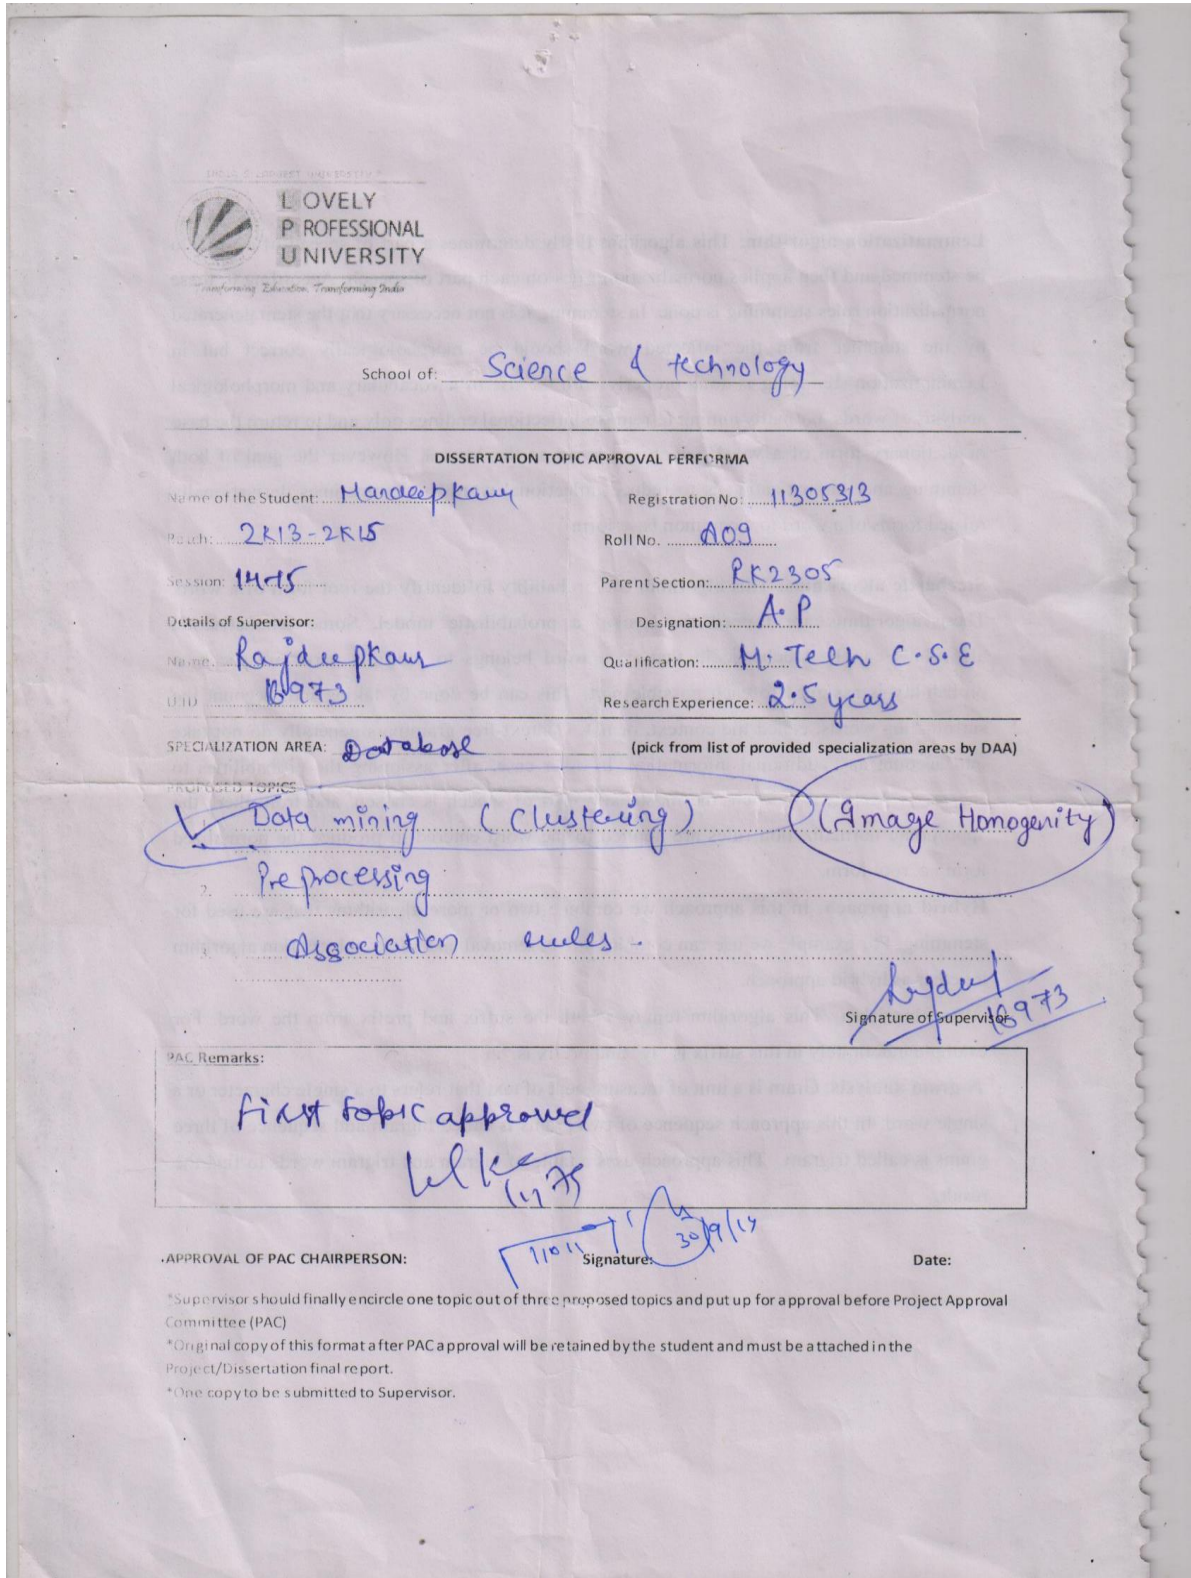 INDIA'S LARGEST UNIVERSITY
LOVELY
PROFESSIONAL
UNIVERSITY
Transforming Education Transforming India
School of: Science & technology
DISSERTATION TOPIC APPROVAL PERFORMA
Name of the Student: Mandeep Kaur Registration No: 11305313
Batch: 2K13-2K15 Roll No. A09
Session: 14-15 Parent Section: RK2305
Details of Supervisor: Designation: A.P
Name. Rajdeep Kaur Qualification: M. Tech C.S.E
UID 16973 Research Experience: 2.5 years
SPECIALIZATION AREA: Database (pick from list of provided specialization areas by DAA)
PROPOSED TOPICS
Data mining (Clustering) (Image Homogenity)
2. Preprocessing
3. Association rules.
16973
Signature of Supervisor
PAC Remarks:
first topic approved
11011 30/9/14
APPROVAL OF PAC CHAIRPERSON: Signature: Date:
*Supervisor should finally encircle one topic out of three proposed topics and put up for approval before Project Approval
Committee (PAC)
*Original copy of this format after PAC approval will be retained by the student and must be attached in the
Project/Dissertation final report.
*One copy to be submitted to Supervisor.